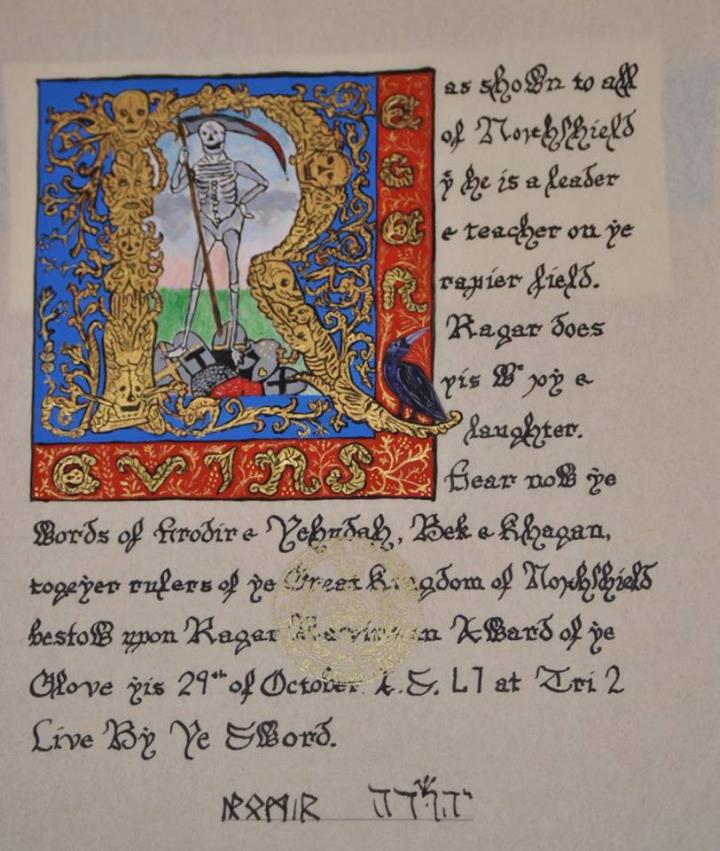 R
AGAR
as shown to all
of Northshield
ẏ he is a leader
e teacher on ye
rapier field.
Ragar does
yis Wᵗ joy e
laughter.
Hear now ye
Words of Hrodir e Yehudah, Bek e Khagan,
togeyer rulers of ye Great Kingdom of Northshield
bestow upon Ragar Award of ye
Glove yis 29th of October A.S. L1 at Tri 2
Live By Ye Sword.
ᚺᚱᛟᛞᛁᚱ יהודה